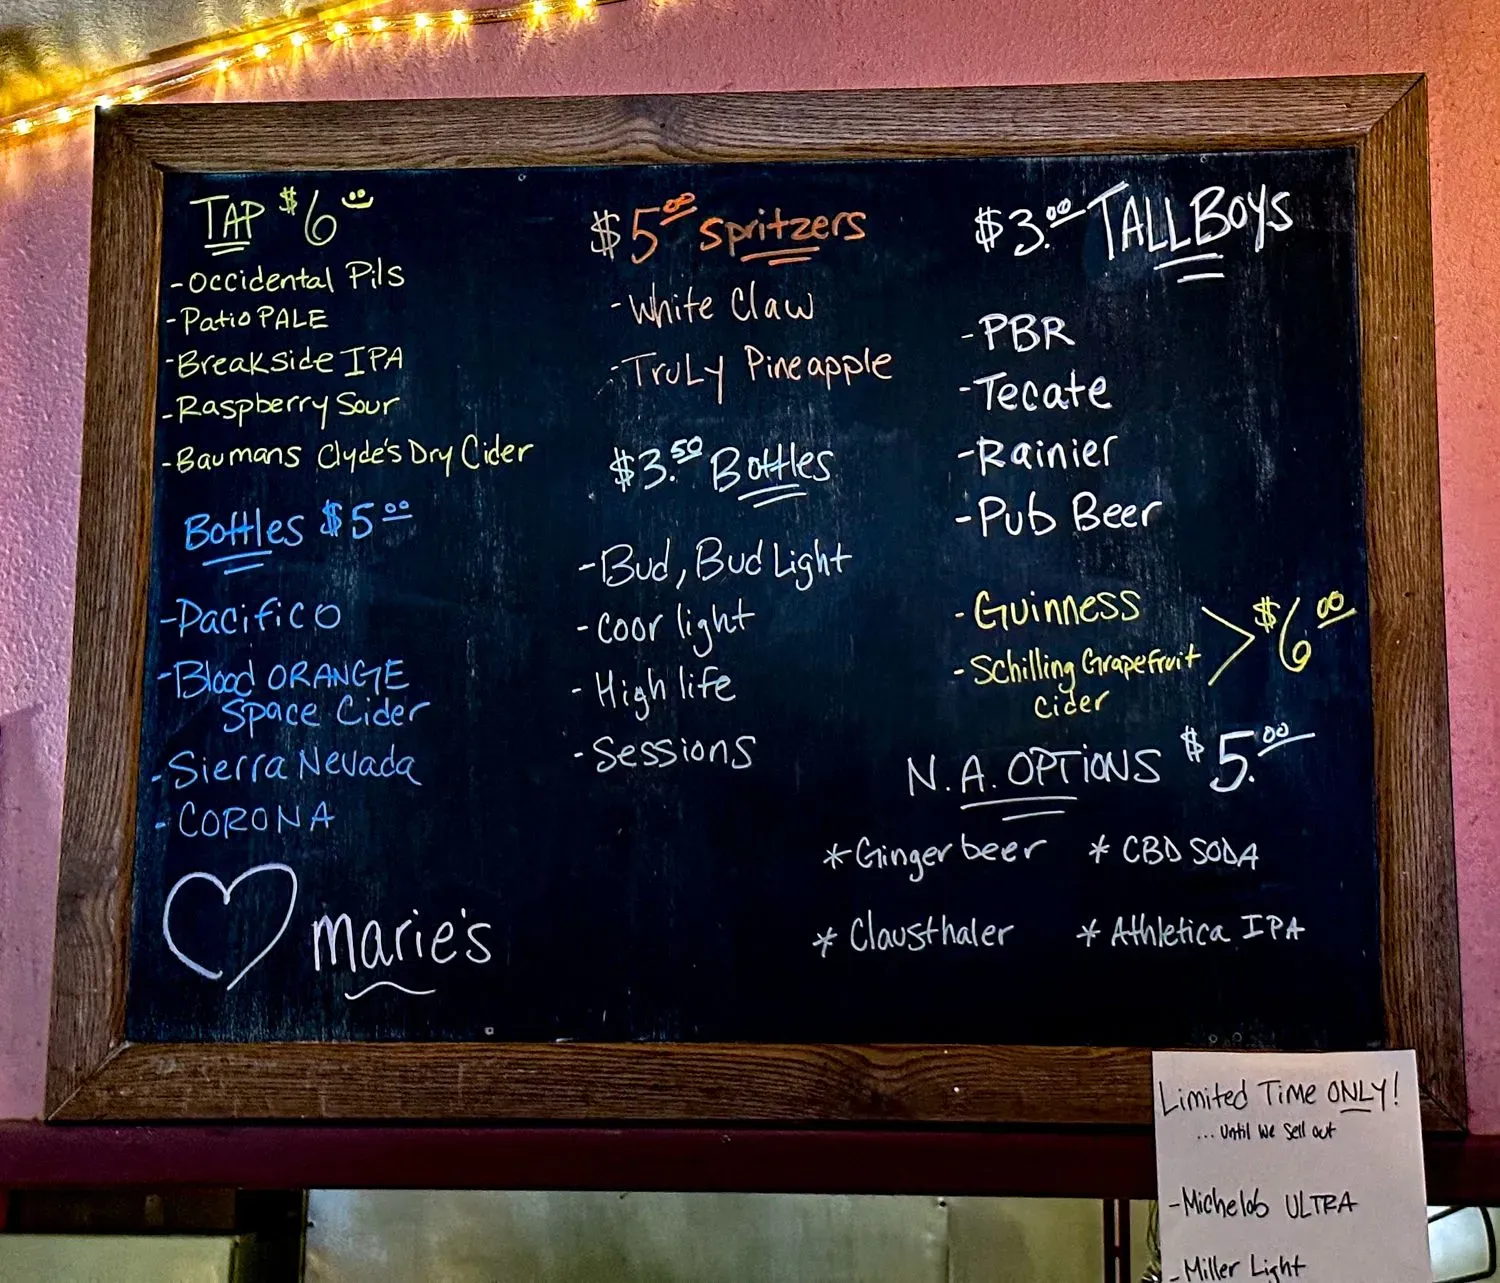 TAP $6
-Occidental Pils
-Patio PALE
-Breakside IPA
-Raspberry Sour
-Baumans Clyde's Dry Cider
Bottles $5.00
-Pacifico
-Blood ORANGE
Space Cider
-Sierra Nevada
-CORONA
marie's
$5.00 spritzers
-White Claw
-TRULY Pineapple
$3.50 Bottles
-Bud, Bud Light
-Coor light
-High life
-Sessions
$3.00 TALL BOYS
-PBR
-Tecate
-Rainier
-Pub Beer
-Guinness
-Schilling Grapefruit
Cider
> $6.00
N.A. OPTIONS $5.00
*Ginger beer * CBD SODA
* Clausthaler * Athletica IPA
Limited Time ONLY!
... until we sell out
-Michelob ULTRA
-Miller Light